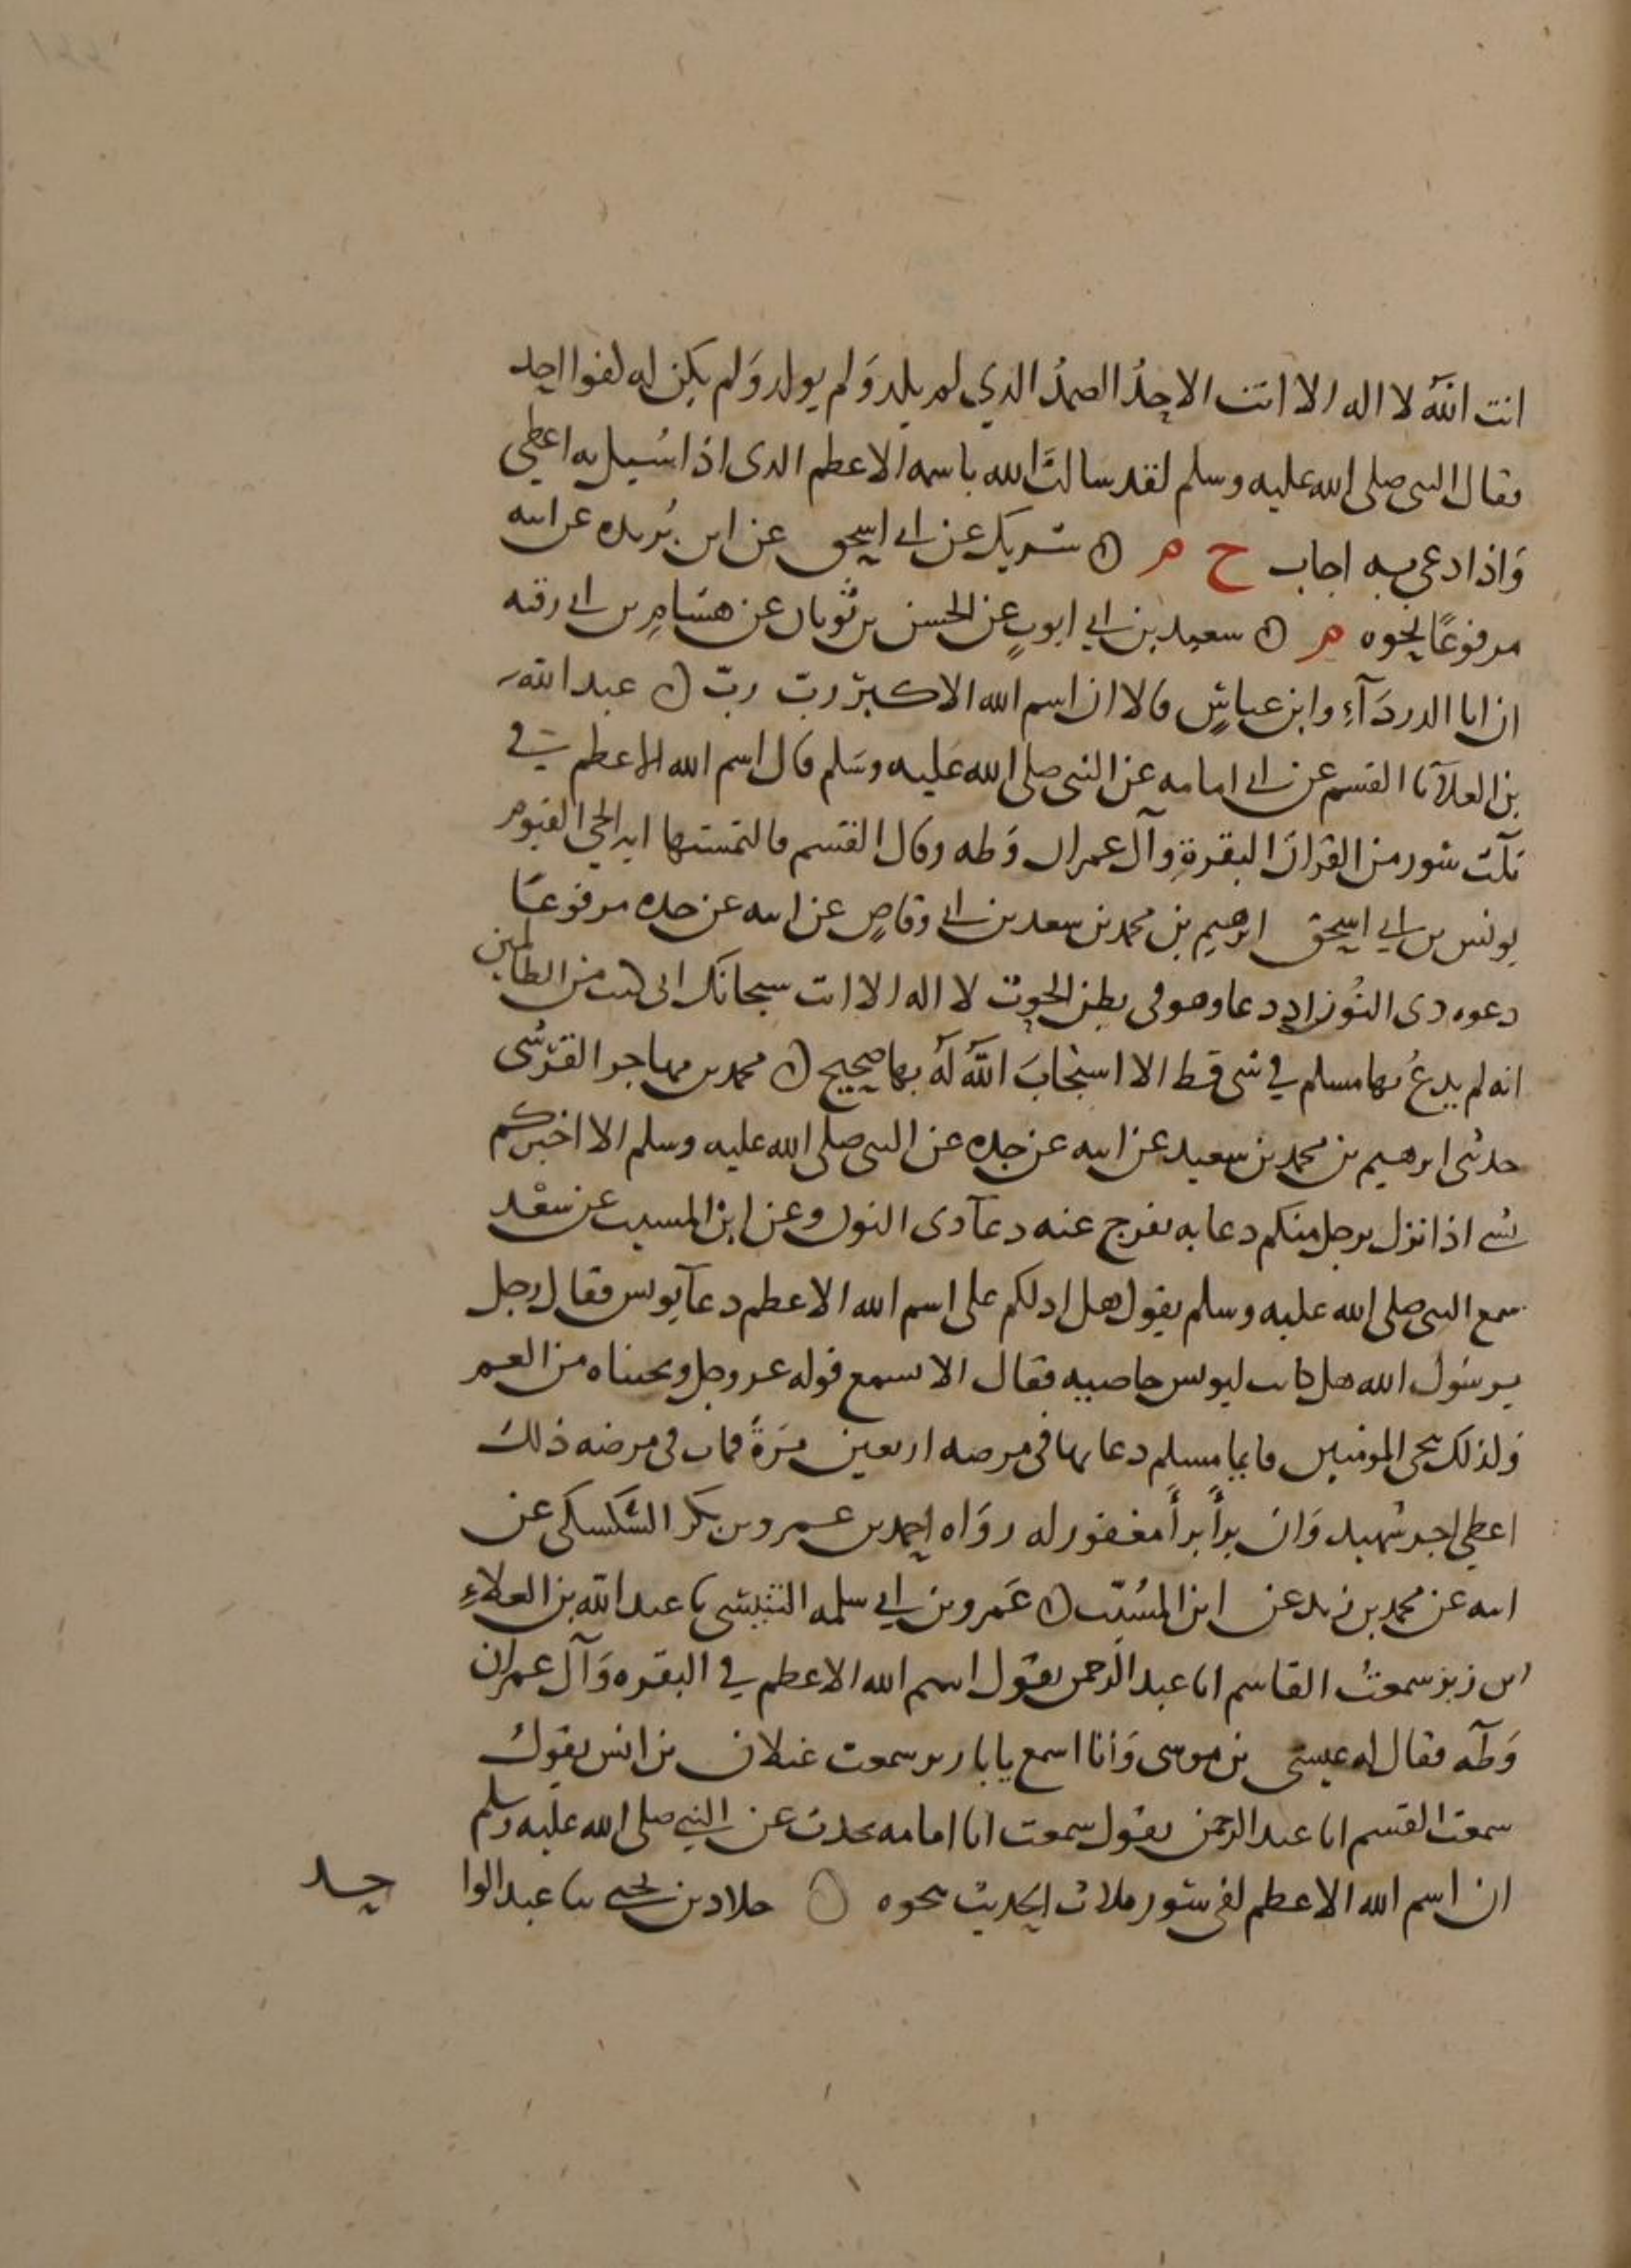 انت اللهُ لا اله الا انت الاحدُ الصمدُ الذي لم يلد وَلم يولد وَلم يكن له كفوا احد
فقال النبى صلى الله عليه وسلم لقد سالتَ الله باسمه الاعظم الذى اذا سُيل به اعطي
وَاذا دعي به اجاب ح م ۞ شريك عن ابي اسحق عن ابن بُريده عن ابيه
مرفوعًا نحوه م ۞ سعيد بن ابي ايوبٍ عن الحسن بن ثوبان عن هشامِ بن ابي رقيه
ان ابا الدردَآءِ وابن عباسٍ قالا ان اسم الله الاكبر ربّ ربّ ۞ عبد الله
بن العلآ نا القسم عن ابي امامه عن النبى صلى الله عليه وسَلم قال اسم الله الاعظم في
ثلث سُور من القران البقرةِ وآل عمران وَطه وقال القسم فالتمستها ايه الحي القيوم
يونس بن ابي اسحق ابرهيم بن محمد بن سعد بن ابي وقاصٍ عن ابيه عن جده مرفوعًا
دعوه ذى النُون اذ دعا وهو فى بطن الحوت لا اله الا انت سبحانك انى كنت من الظالمين
انه لم يدعُ بها مسلم في شى قط الا استجابَ اللهُ لهُ بها صحيح ۞ محمد بن مهاجر القرَشى
حدثنى ابرهيم بن محمد بن سعيد عن ابيه عن جده عن النبى صلى الله عليه وسلم الا اخبركم
بشي اذا نزل برجل منكم دعا به يفرج عنه دعآ ذى النون وعن ابن المسيب عن سعْد
سمع النبى صلى الله عليه وسلم يقول هل ادلكم على اسم الله الاعظم دعآ يونس فقال رجل
يرسُول الله هل كانت ليونس خاصيه فقال الا تسمع قوله عز وجل ونجيناه من الغم
وَلذلك ننجى المومنين فايما مسلم دعا بها فى مرضه اربعين مَرَةً فمات فى مرضه ذلك
اعطي اجر شهيد وَان برأ برأ مغفور له روَاه احمد بن عمرو بن بكر السَكسكى عن
ابيه عن محمد بن زيد عن ابن المسُيّب ۞ عَمرو بن ابي سلمه التنيسي نا عبد الله بن العلاءِ
ابن زبر سمعتُ القاسم ابا عبد الرحمن يقول اسم الله الاعظم في البقره وَآل عمران
وَطَه فقال له عيسى بن موسى وَانا اسمع يا با زبر سمعت غيلان بن انس يقول
سمعت القسم ابا عبد الرحمن يقول سمعت ابا امامه يحدث عن النبي صلى الله عليه وسلم
ان اسم الله الاعظم لفى سُور ثلاث الحديث نحوه ۞ خلاد بن يحيي نا عبد الوا
حد